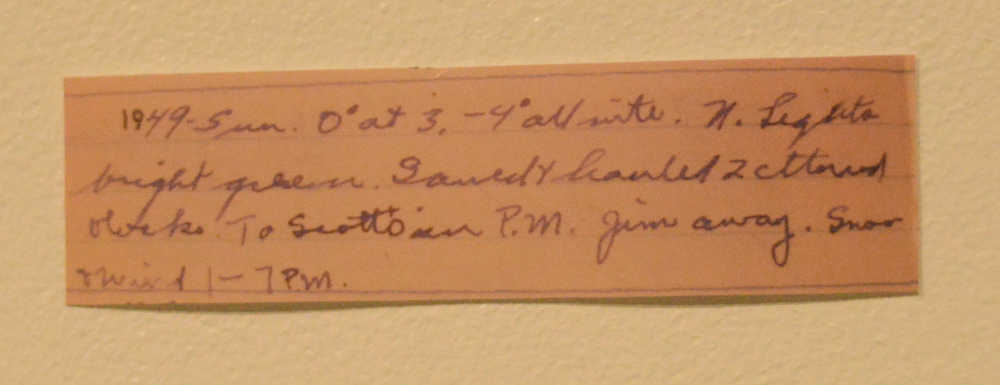 1949-Sun. 0° at 3, -4° all nite. N. Lights
bright green. Sawed & hauled 2 
blocks. To Scott's in P.M. Jim away. Snow
& wind 1-7 P.M.